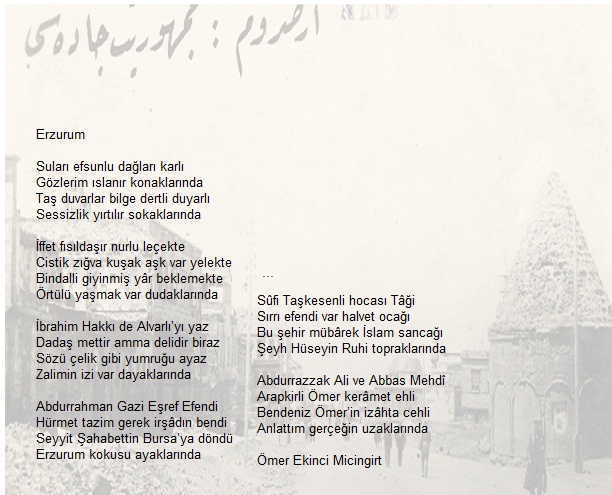 ارضروم : جمهوریت جاده‌سی
Erzurum
Suları efsunlu dağları karlı
Gözlerim ıslanır konaklarında
Taş duvarlar bilge dertli duyarlı
Sessizlik yırtılır sokaklarında
İffet fısıldaşır nurlu leçekte
Cistik zığva kuşak aşk var yelekte
Bindalli giyinmiş yâr beklemekte
Örtülü yaşmak var dudaklarında
İbrahim Hakkı de Alvarlı’yı yaz
Dadaş mettir amma delidir biraz
Sözü çelik gibi yumruğu ayaz
Zalimin izi var dayaklarında
Abdurrahman Gazi Eşref Efendi
Hürmet tazim gerek irşâdın bendi
Seyyit Şahabettin Bursa’ya döndü
Erzurum kokusu ayaklarında
...
Sûfi Taşkesenli hocası Tâği
Sırrı efendi var halvet ocağı
Bu şehir mübârek İslam sancağı
Şeyh Hüseyin Ruhi topraklarında
Abdurrazzak Ali ve Abbas Mehdî
Arapkirli Ömer kerâmet ehli
Bendeniz Ömer’in izâhta cehli
Anlattım gerçeğin uzaklarında
Ömer Ekinci Micingirt